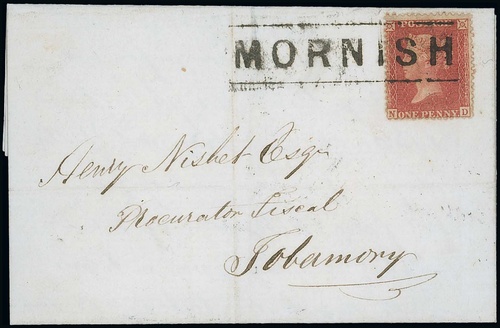 MORNISH
N ONE PENNY D
Henry Nisbet Esqr
Procurator Fiscal
Tobamory